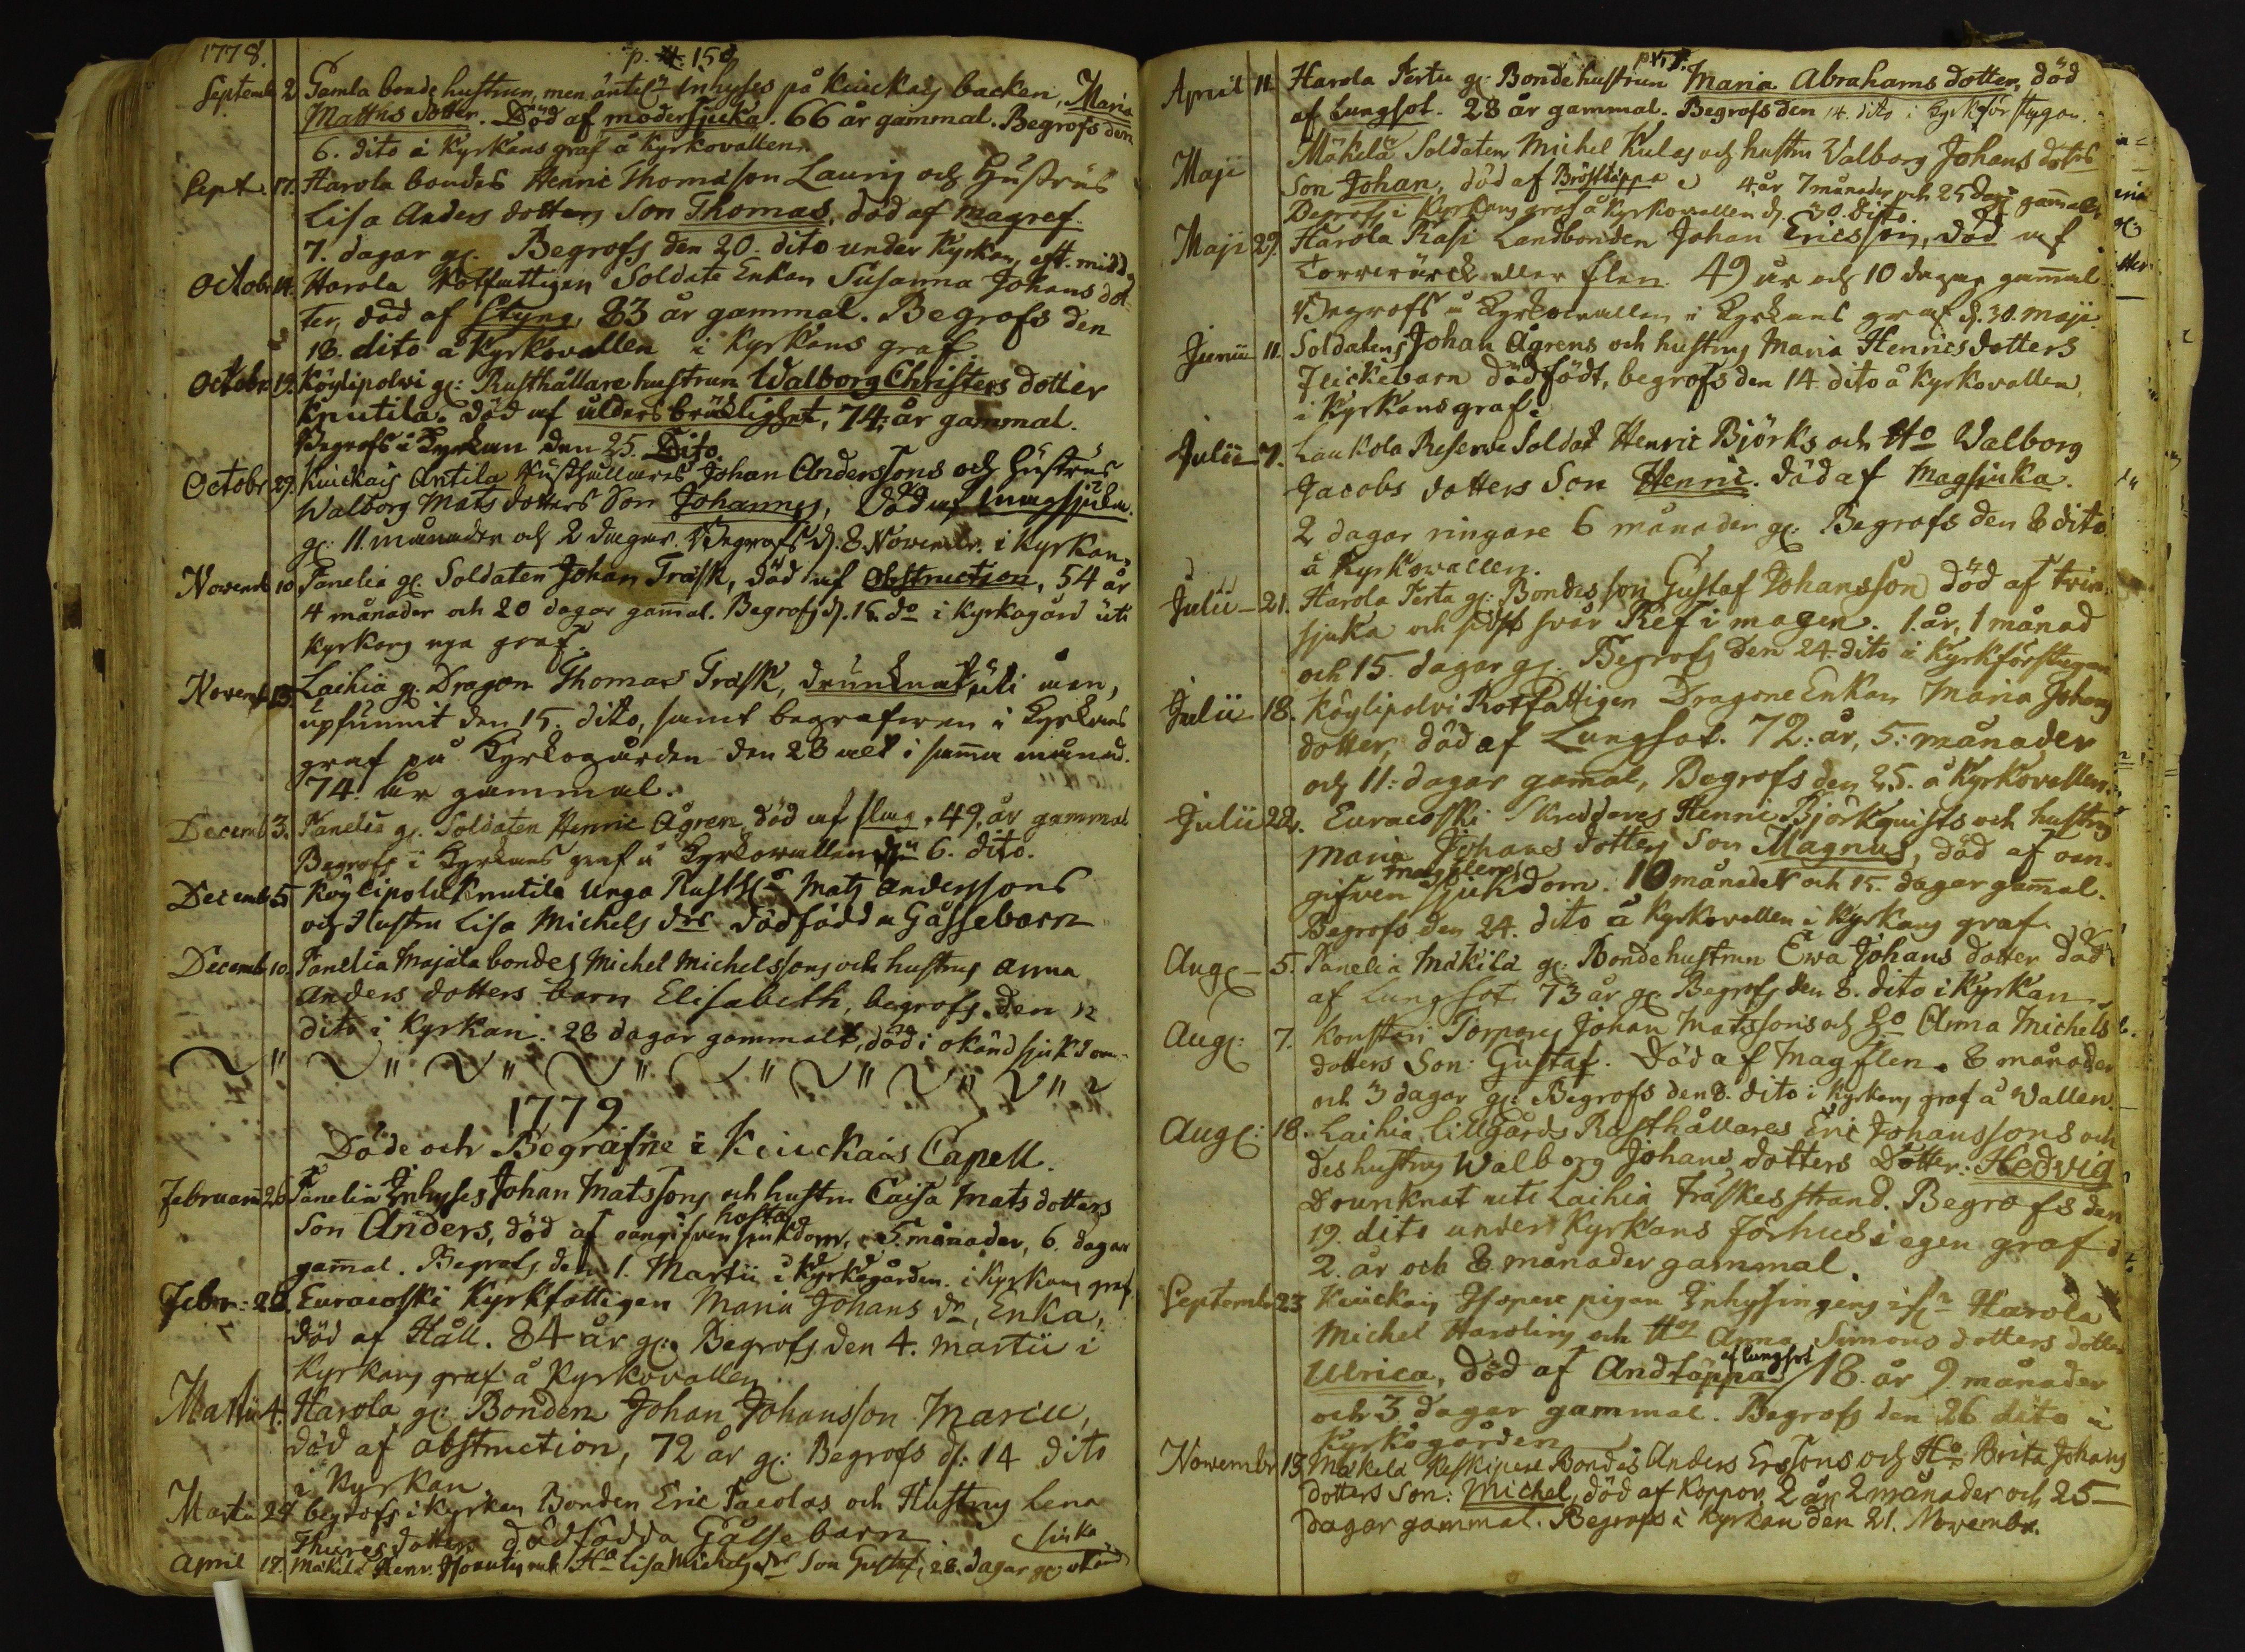 1778.
p. 150
Septemb 2. Gamla bonde hustrun, men äntel. Inhyses på Kiuckais backen, Maria
Matths dotter. Död af modersjuka. 66 år gammal. Begrofs den
6. dito i Kyrkans graf å Kyrkovallen.
Sept. 17. Harola bondes Henric Thomasson Lauris och Hustrus
Lisa Anders dotters Son Thomas, död af magref.
7. dagar gl. Begrofs den 20. dito under Kyrkan, eft. midd.
Octobr 14. Harola Rotfattigen Soldate Enkan Susanna Johans dot-
ter, död af Styng, 83 år gammal. Begrofs den
18. dito å Kyrkovallen i Kyrkans graf
Octobr. 19. Köylipolvi gl: Rusthållare hustrun Walborg Christers dotter
Knutila. död af ålders bräcklighet, 74; år gammal.
Begrofs i Kyrkan den 25. Dito.
Octobr. 29. Kiuckais Antila Rusthållares Johan Anderssons och Hustrus
Walborg Mats dotters Son Johannes, död af magsjuka.
gl: 11. månader och 2 dagar. Begrofs d. 8. Novembr. i Kyrkan.
Novemb 10 Panelia gl. Soldaten Johan Träsk, död af Obstruction, 54 år
4 månader och 20 dagar gamal. Begrofs d. 15. do i Kyrkogård uti
Kyrkans nya graf.
Novemb. 13. Laihia gl. Dragon Thomas Träsk, drunknat uti åen,
upfunnit den 15. dito, samt begrafven i Kyrkans
graf på Kyrkogården den 28 alt i sama månad.
74 år gammal.
Decemb 3. Panelia gl. Soldaten Henric Ågren, död af slag, 49, år gammal
Begrofs i Kyrkans graf å Kyrkovallen den 6. dito.
Decemb 5 Köylipolvi Knutila Unga Rusth. Mats Anderssons
och Hustru Lisa Michels drs dödfödda Gåssebarn
Decemb. 10. Panelia Majala bondes Michel Michelssons och hustrus Anna
Anders dotters barn Elisabeth, begrofs den 12
dito i Kyrkan. 28 dagar gammalt, död i okänd sjukdom.
1779
Döde och Begrafne i Kiuckais Capell.
Februarii 26. Panelia Inhyses Johan Matssons och hustru Caisa Mats dotters
hosta
Son Anders, död af oangifven sjukdom, 5. månader, 6. dagar
gamal. Begrofs den 1. Martii i Kyrkogården. i Kyrkans graf.
Febr: 28. Euracoski Kyrkfattigen Maria Johans dr, Enka,
död af Håll. 84 år gl. Begrofs den 4. martii i
Kyrkans graf å Kyrkovallen.
Martii 4. Harola gl: Bonden Johan Johansson Marcu,
död af obstruction, 72 år gl: Begrofs d: 14 dito
i Kyrkan.
Martii 24 begrofs i Kyrkan Bonden Eric Pacolas och Hustrus Lena
Thures dotters dödfödda Gåssebarn
sjuka
April 17. Mäkilä Henr. och Ho Lisa Michels drs Son Gustaf, 28. dagar gl. okänd
April 11 Harola Perttu gl: Bondehustrun Maria Abrahams dotter, död
af Lungsot. 28 år gammal. Begrofs den 14. dito i Kyrkförstugan.
Maji Mäkelä Soldaten Michel Kulas och hustru Valborg Johans dotters
Son Johan, död af Bröstäppa 4 år 7 månader och 25 dagar gamal
Begrofs i Kyrkans graf å Kyrkovallen d. 30. Dito.
Maji 29. Harola Rasi Landbonden Johan Ericsson, död af
Torrvärck eller flen 49 år och 10 dagar gamal
Begrofs å Kyrkovallen i Kyrkans graf d. 30. Maji
Junii 11. Soldatens Johan Ågrens och hustrus Maria Henricsdotters
Flickebarn dödfödt, begrofs den 14. dito å Kyrkovallen
i Kyrkans graf.
Julii 7. Laukola Reserve Soldat Henric Björks och Ho Walborg
Jacobs dotters Son Henric. död af Magsjuka.
2 dagar ringare 6 månader gl. Begrofs den 8 dito
å Kyrkovallen.
Julii 21. Harola Perta gl: Bondes son Gustaf Johansson död af trin-
sjuka och sidst svår Ref i magen. 1. år, 1 månad
och 15. dagar gl. Begrofs den 24. dito i Kyrkförstugan
Julii 18. Köylipolvi Rotfattigen Dragone Enkan Maria Johans
dotter, död af Lungsot. 72: år, 5: månader
och 11: dagar gamal, Begrofs den 25. å Kyrkovallen.
Julii 22. Euracoski Skreddares Henric Björkquists och hustrus
Maria Johans dotters Son Magnus, död af oan-
magflen
gifven sjukdom. 10 månader och 15. dagar gamal.
Begrofs den 24. dito å Kyrkovallen i Kyrkans graf.
Aug. 5. Panelia Mäkilä gl: Bondehustrun Ewa Johans dotter död
af Lungsot 73 år gl. Begrofs den 8. dito i Kyrkan
Aug: 7. Torpares Johan Matssons och Ho Anna Michels
dotters Son: Gustaf. Död af Magflen. 8 månader
och 3 dagar gl: Begrofs den 8. dito i Kyrkans graf å Vallen.
Aug: 18. Laihia Lillgårds Rusthållares Eric Johanssons och
des hustrus Walborg Johans dotters Dotter: Hedvig
Drunknat uti Laihia Träskes strand. Begrofs den
19. dito under Kyrkans förhus i egen graf
2. år och 8 månader gammal.
Septemb 23 Kiuckais pigan Inhysingens Harola
Michel Harolins och Hos Anna Simons dotters dotter
af lungsot
Ulrica, död af Andtäppa 18. år 9 månader
och 3 dagar gammal. Begrofs den 26 dito i
Kyrkogården
Novembr. 19. Mäkelä Bondes Anders Erssons och Ho Brita Johans
dotters Son: Michel, död af Koppor, 2 år 2 månader och 25
dagar gammal. Begrofs i Kyrkan den 21. Novembr.